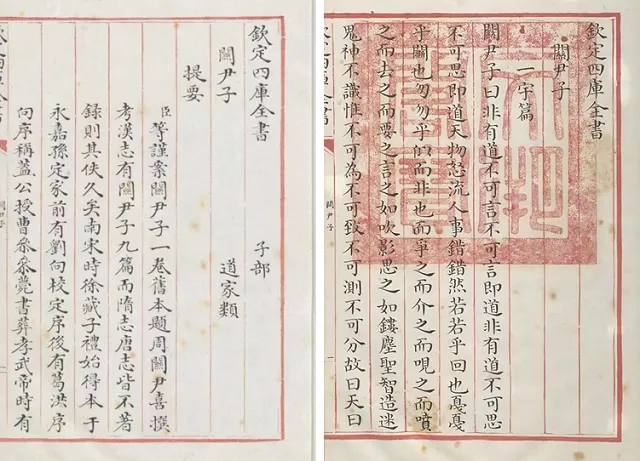 欽定四庫全書 子部
關尹子 道家類
提要
臣等謹案關尹子一卷舊本題周關尹喜撰
考漢志有關尹子九篇而隋志唐志皆不著
錄則其佚久矣南宋時徐藏子禮始得本于
永嘉孫定家前有劉向校定序後有葛洪序
向序稱蓋公授曹參參薨書葬孝武帝時有
關尹子
欽定四庫全書
關尹子
一宇篇
關尹子曰非有道不可言不可言即道非有道不可思
不可思即道天物怒流人事錯錯然若若乎回也戞戞
乎鬭也勿勿乎似而非也而爭之而介之而哯之而嘖
之而去之而要之言之如吹影思之如鏤塵聖智造迷
鬼神不識惟不可為不可致不可測不可分故曰天曰
關尹子